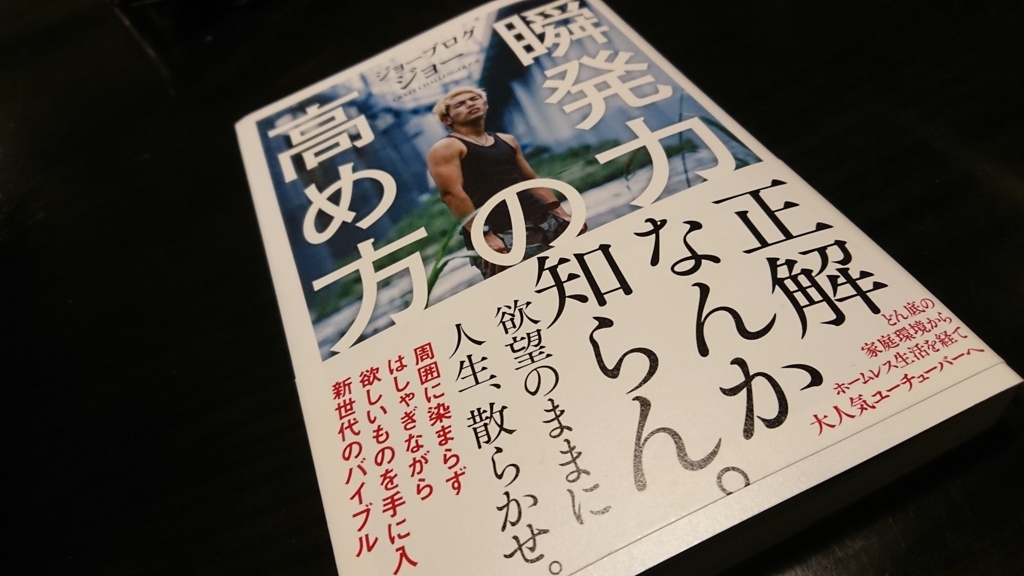 瞬発力の
高め方
ジョーブログ
ジョー
正解
なんか
知らん。
欲望のままに
人生、散らかせ。
どん底の
家庭環境から
ホームレス生活を経て
大人気ユーチューバーへ
周囲に染まらず
はしゃぎながら
欲しいものを手に入
新世代のバイブル